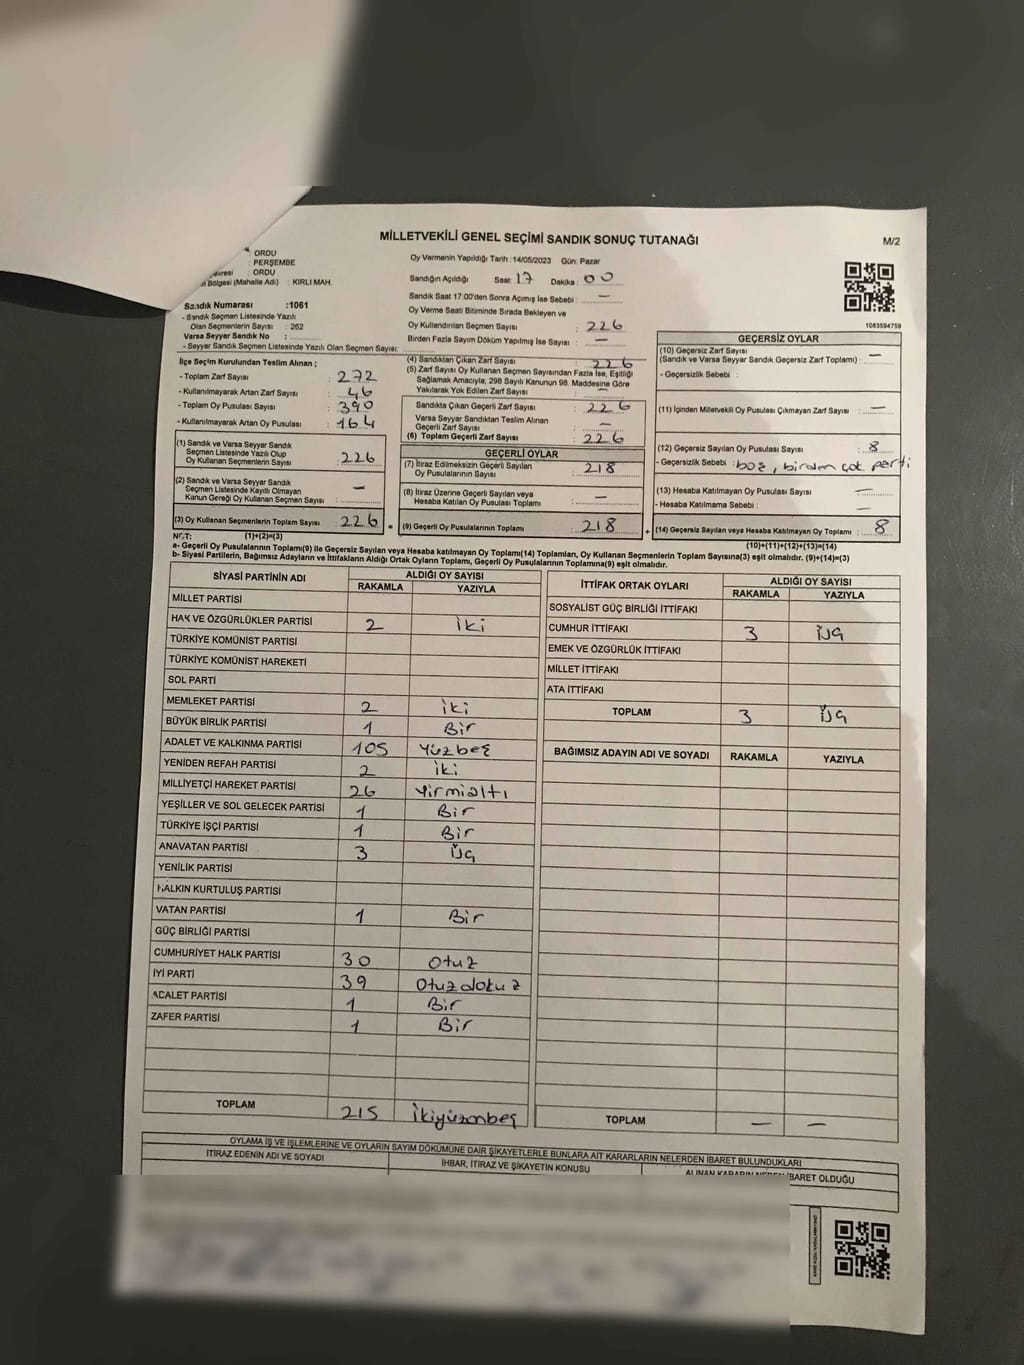 MİLLETVEKİLİ GENEL SEÇİMİ SANDIK SONUÇ TUTANAĞI
M/2
: ORDU
: PERŞEMBE
: ORDU
Bölgesi (Mahalle Adı) : KIRLI MAH.
Oy Vermenin Yapıldığı Tarih :14/05/2023 Gün: Pazar
Sandığın Açıldığı Saat: 17 Dakika: 00
Sandık Saat 17:00'den Sonra Açımış İse Sebebi : —
Oy Verme Saati Bitiminde Sırada Bekleyen ve
Oy Kullandırılan Seçmen Sayısı : 226
Birden Fazla Sayım Döküm Yapılmış İse Sayısı : —
1083594759
Sandık Numarası :1061
- Sandık Seçmen Listesinde Yazılı
Olan Seçmenlerin Sayısı : 262
Varsa Seyyar Sandık No :
- Seyyar Sandık Seçmen Listesinde Yazılı Olan Seçmen Sayısı:
İlçe Seçim Kurulundan Teslim Alınan ;
- Toplam Zarf Sayısı : 272
- Kullanılmayarak Artan Zarf Sayısı : 46
- Toplam Oy Pusulası Sayısı : 390
- Kullanılmayarak Artan Oy Pusulası : 164
(1) Sandık ve Varsa Seyyar Sandık
Seçmen Listesinde Yazılı Olup
Oy Kullanan Seçmenlerin Sayısı : 226
(2) Sandık ve Varsa Seyyar Sandık
Seçmen Listesinde Kayıtlı Olmayan
Kanun Gereği Oy Kullanan Seçmen Sayısı : —
(3) Oy Kullanan Seçmenlerin Toplam Sayısı : 226
(4) Sandıktan Çıkan Zarf Sayısı : 226
(5) Zarf Sayısı Oy Kullanan Seçmen Sayısından Fazla İse, Eşitliği
Sağlamak Amacıyla, 298 Sayılı Kanunun 98. Maddesine Göre
Yakılarak Yok Edilen Zarf Sayısı : —
Sandıkta Çıkan Geçerli Zarf Sayısı : 226
Varsa Seyyar Sandıktan Teslim Alınan
Geçerli Zarf Sayısı : —
(6) Toplam Geçerli Zarf Sayısı : 226
GEÇERLİ OYLAR
(7) İtiraz Edilmeksizin Geçerli Sayılan
Oy Pusulalarının Sayısı : 218
(8) İtiraz Üzerine Geçerli Sayılan veya
Hesaba Katılan Oy Pusulası Toplamı : —
= (9) Geçerli Oy Pusulalarının Toplamı : 218 +
GEÇERSİZ OYLAR
(10) Geçersiz Zarf Sayısı
(Sandık ve Varsa Seyyar Sandık Geçersiz Zarf Toplamı) : —
- Geçersizlik Sebebi :
(11) İçinden Milletvekili Oy Pusulası Çıkmayan Zarf Sayısı : —
(12) Geçersiz Sayılan Oy Pusulası Sayısı : 8
- Geçersizlik Sebebi : boş, birden çok parti
(13) Hesaba Katılmayan Oy Pusulası Sayısı : —
- Hesaba Katılmama Sebebi : —
(14) Geçersiz Sayılan veya Hesaba Katılmayan Oy Toplamı : 8
NOT: (1)+(2)=(3)
(10)+(11)+(12)+(13)=(14)
a- Geçerli Oy Pusulalarının Toplamı(9) ile Geçersiz Sayılan veya Hesaba katılmayan Oy Toplam(14) Toplamları, Oy Kullanan Seçmenlerin Toplam Sayısına(3) eşit olmalıdır. (9)+(14)=(3)
b- Siyasi Partilerin, Bağımsız Adayların ve İttifakların Aldığı Ortak Oyların Toplamı, Geçerli Oy Pusulalarının Toplamına(9) eşit olmalıdır.
SİYASİ PARTİNİN ADI ALDIĞI OY SAYISI
RAKAMLA YAZIYLA
MİLLET PARTİSİ
HAK VE ÖZGÜRLÜKLER PARTİSİ 2 iki
TÜRKİYE KOMÜNİST PARTİSİ
TÜRKİYE KOMÜNİST HAREKETİ
SOL PARTİ
MEMLEKET PARTİSİ 2 iki
BÜYÜK BİRLİK PARTİSİ 1 Bir
ADALET VE KALKINMA PARTİSİ 105 Yüzbeş
YENİDEN REFAH PARTİSİ 2 iki
MİLLİYETÇİ HAREKET PARTİSİ 26 Yirmialtı
YEŞİLLER VE SOL GELECEK PARTİSİ 1 Bir
TÜRKİYE İŞÇİ PARTİSİ 1 Bir
ANAVATAN PARTİSİ 3 Üç
YENİLİK PARTİSİ
HALKIN KURTULUŞ PARTİSİ
VATAN PARTİSİ 1 Bir
GÜÇ BİRLİĞİ PARTİSİ
CUMHURİYET HALK PARTİSİ 30 Otuz
İYİ PARTİ 39 Otuzdokuz
ADALET PARTİSİ 1 Bir
ZAFER PARTİSİ 1 Bir
TOPLAM 215 ikiyüzonbeş
İTTİFAK ORTAK OYLARI ALDIĞI OY SAYISI
RAKAMLA YAZIYLA
SOSYALİST GÜÇ BİRLİĞİ İTTİFAKI
CUMHUR İTTİFAKI 3 Üç
EMEK VE ÖZGÜRLÜK İTTİFAKI
MİLLET İTTİFAKI
ATA İTTİFAKI
TOPLAM 3 Üç
BAĞIMSIZ ADAYIN ADI VE SOYADI RAKAMLA YAZIYLA
TOPLAM — —
OYLAMA İŞ VE İŞLEMLERİNE VE OYLARIN SAYIM DÖKÜMÜNE DAİR ŞİKAYETLERLE BUNLARA AİT KARARLARIN NELERDEN İBARET BULUNDUKLARI
İTİRAZ EDENİN ADI VE SOYADI
İHBAR, İTİRAZ VE ŞİKAYETİN KONUSU
ALINAN KARARIN NEDEN İBARET OLDUĞU